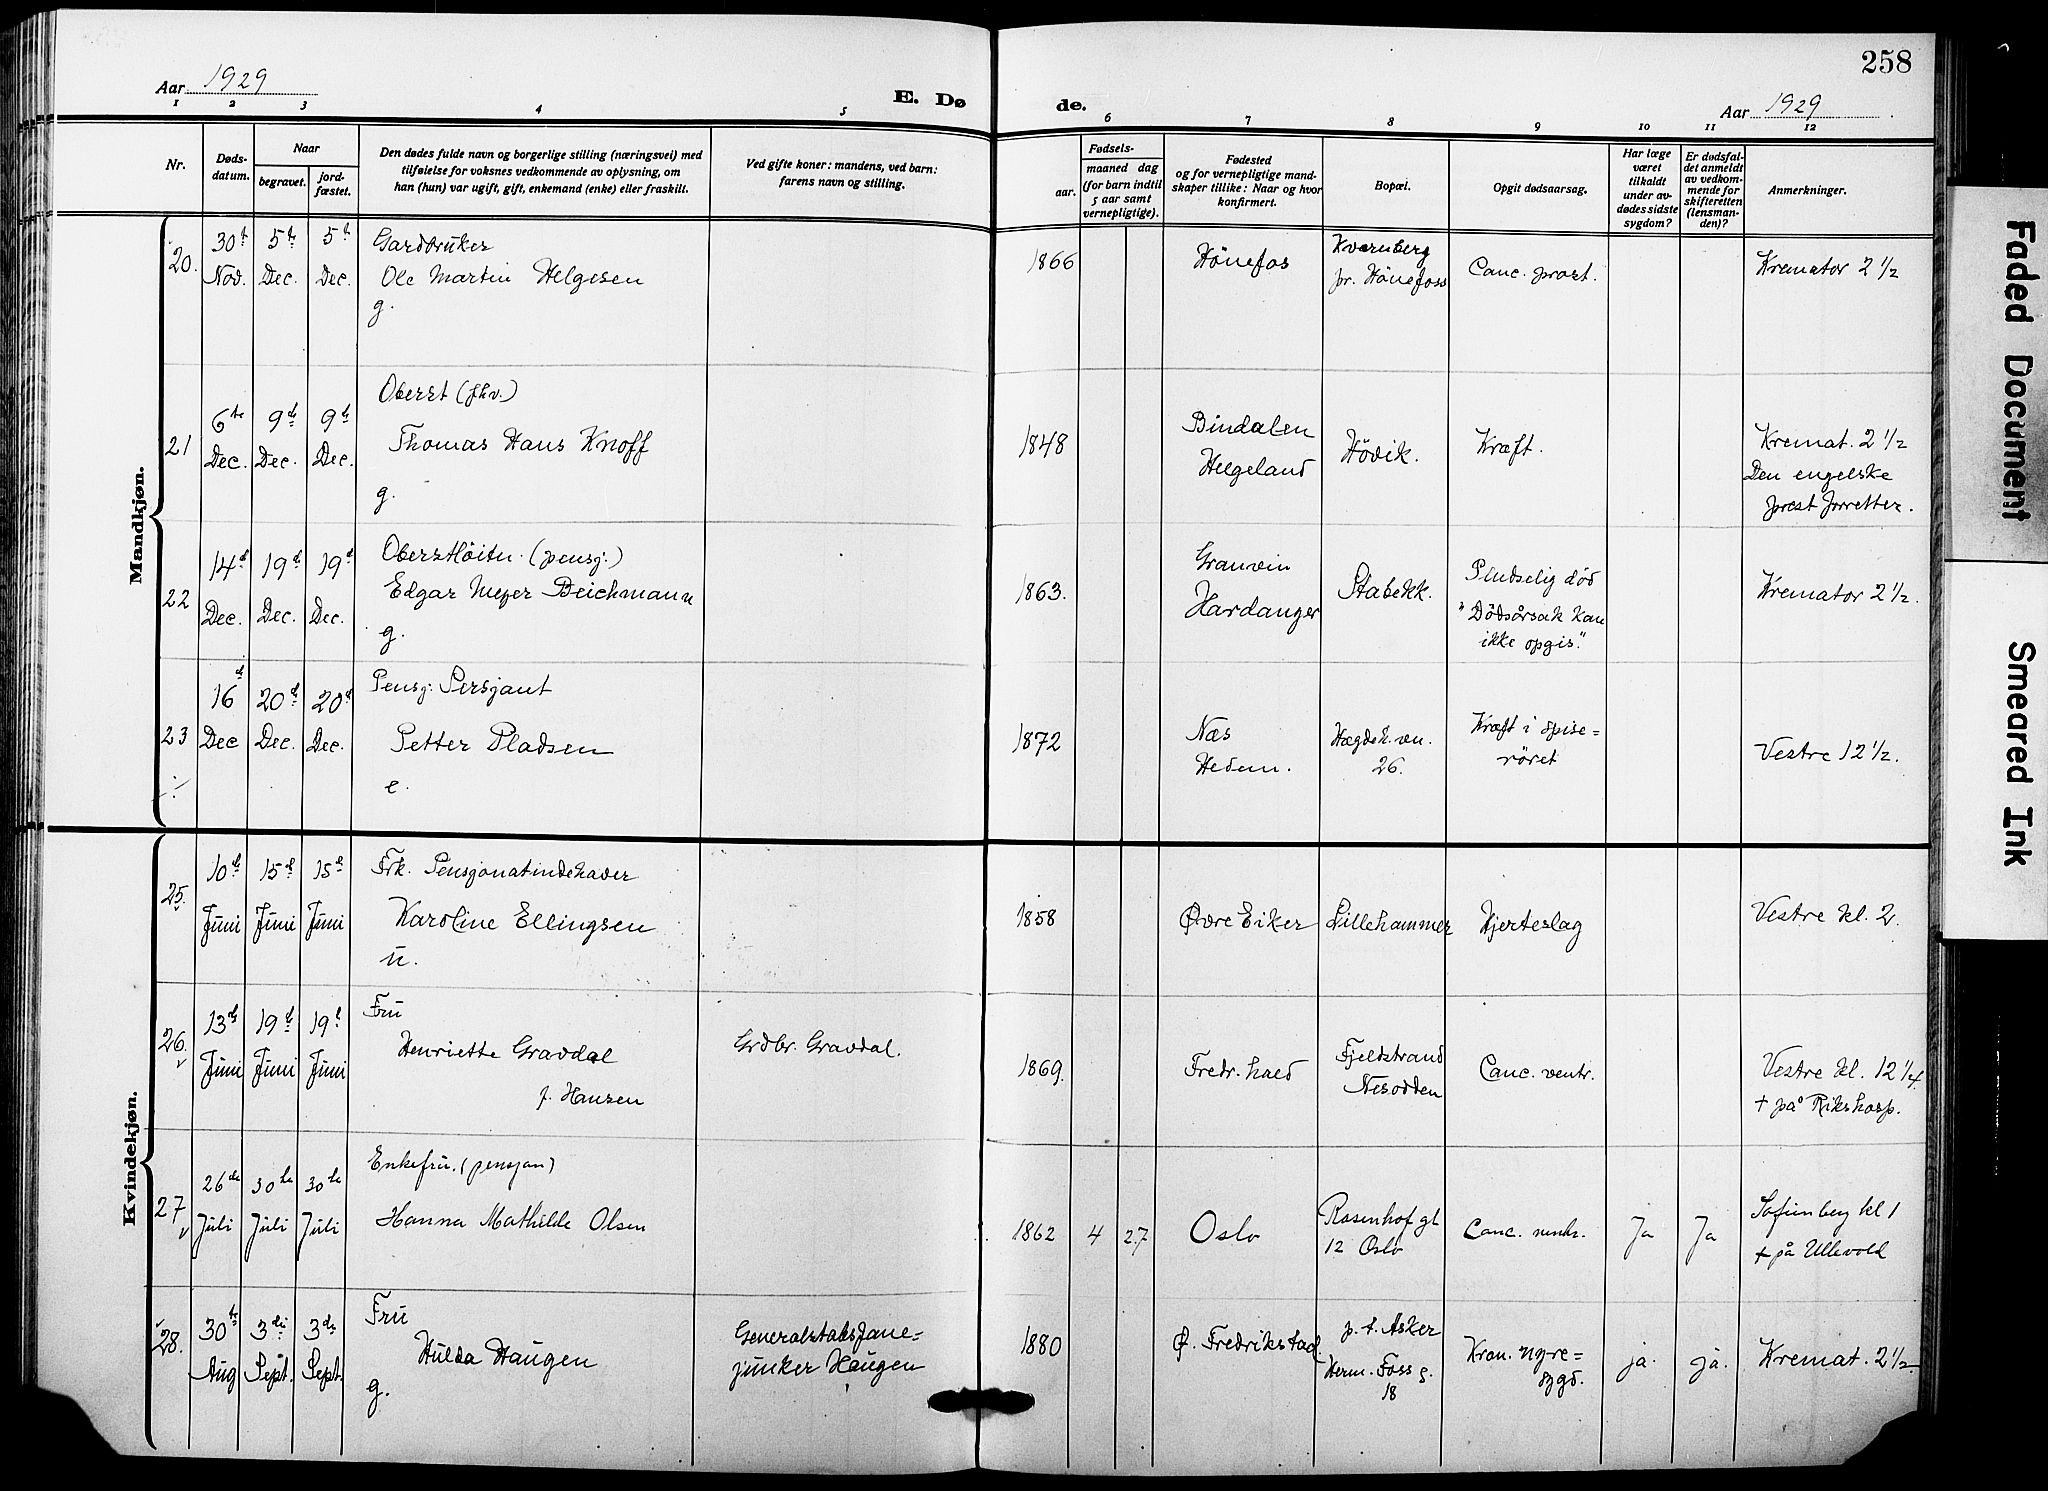 258
Aar 1929
E. Dø
de.
Aar 1929
1 2 3 4 5 6 7 8 9 10 11 12
Nr.
Døds-
datum.
Naar
begravet.
jord-
fæstet.
Den dødes fulde navn og borgerlige stilling (næringsvei) med
tilføielse for voksnes vedkommende av oplysning, om
han (hun) var ugift, gift, enkemand (enke) eller fraskilt.
Ved gifte koner: mandens, ved barn:
farens navn og stilling.
Fødsels-
aar.
maaned dag
(for barn indtil
5 aar samt
vernepligtige).
Fødested
og for vernepligtige mand-
skaper tillike: Naar og hvor
konfirmert.
Bopæl.
Opgit dødsaarsag.
Har læge
været
tilkaldt
under av-
dødes sidste
sygdom?
Er dødsfal-
det anmeldt
av vedkom-
mende for
skifteretten
(lensman-
den)?
Anmerkninger.
Mandkjøn.
20.
30te
Nov.
5te
Dec.
5te
Dec.
Gardbruker
Ole Martin Helgesen
g.
1866
Hönefos
Kvernberg
pr. Hönefoss
Canc. prost.
Kremator 2 1/2
21
6te
Dec.
9de
Dec.
9de
Dec.
Oberst (fhv.)
Thomas Hans Knoff
g.
1848
Bindalen
Helgeland
Hövik.
Kræft.
Kremat. 2 1/2
Den engelske
prest forretter.
22
14de
Dec.
19de
Dec.
19de
Dec.
Oberstlöitn. (pensj.)
Edgar Meyer Deichmann
g.
1863.
Granvin
Hardanger
Stabekk.
Pludselig död
"Dödsårsak kan
ikke opgis."
Kremator 2 1/2.
23
16de
Dec
20de
Dec.
20de
Dec.
Pensj: Sersjant
Petter Pladsen
e.
1872
Næs
Hedem.
Hægdeh.vn.
26.
Kræft i spise=
röret
Vestre 12 1/2.
Kvindekjøn.
25.
10de
Juni
15de
Juni
15de
Juni
Frk. Pensjonatindehaver
Karoline Ellingsen
u.
1858
Øvre Eiker
Lillehammer
Hjerteslag
Vestre kl. 2.
26.
13de
Juni
19de
Juni
19de
Juni
Fru
Henriette Gravdal
f. Hansen
Grdbr. Gravdal.
1869.
Fredr.hald
Fjeldstrand
Nesodden
Canc. ventr.
Vestre kl. 12 1/4.
+ på Rikshosp.
27
26de
Juli
30te
Juli
30te
Juli
Enkefru. (pensjon)
Hanna Mathilde Olsen
1862
4
27
Oslo
Rosenhof gt
12 Oslo
Canc.
Ja
Ja
Sofienberg kl 1
+ på Ullevold
28.
30te
Aug
3die
Sept.
3die
Sept.
Fru
Hulda Haugen
g.
Generalstabsfane=
junker Haugen
1880
Ø. Fredrikstad.
p. t. Asker
Herm. Foss g.
18
Kron. nyre=
sygd.
ja.
ja.
Kremat. 2 1/2
Faded Document
Smeared Ink